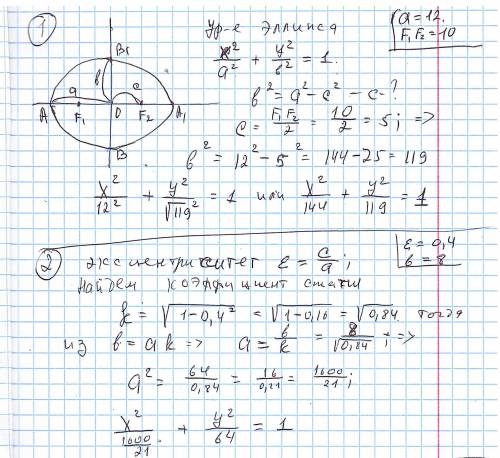 1 Ур-е эллипса
a = 12.
F₁F₂ = 10
x²/a² + y²/b² = 1.
B₁
a b c
A F₁ O F₂ A₁
B
b² = a² - c² - c - ?
c = F₁F₂/2 = 10/2 = 5; =>
b² = 12² - 5² = 144 - 25 = 119
x²/12² + y²/√119² = 1 или x²/144 + y²/119 = 1
2 эксцентриситет ε = c/a;
ε = 0,4
b = 8
Найдем коэффициент сжатия
k = √(1-0,4²) = √(1-0,16) = √0,84 тогда
из b = ak => a = b/k = 8/√0,84; =>
a² = 64/0,84 = 16/0,21 = 1600/21;
x²/(1600/21) + y²/64 = 1